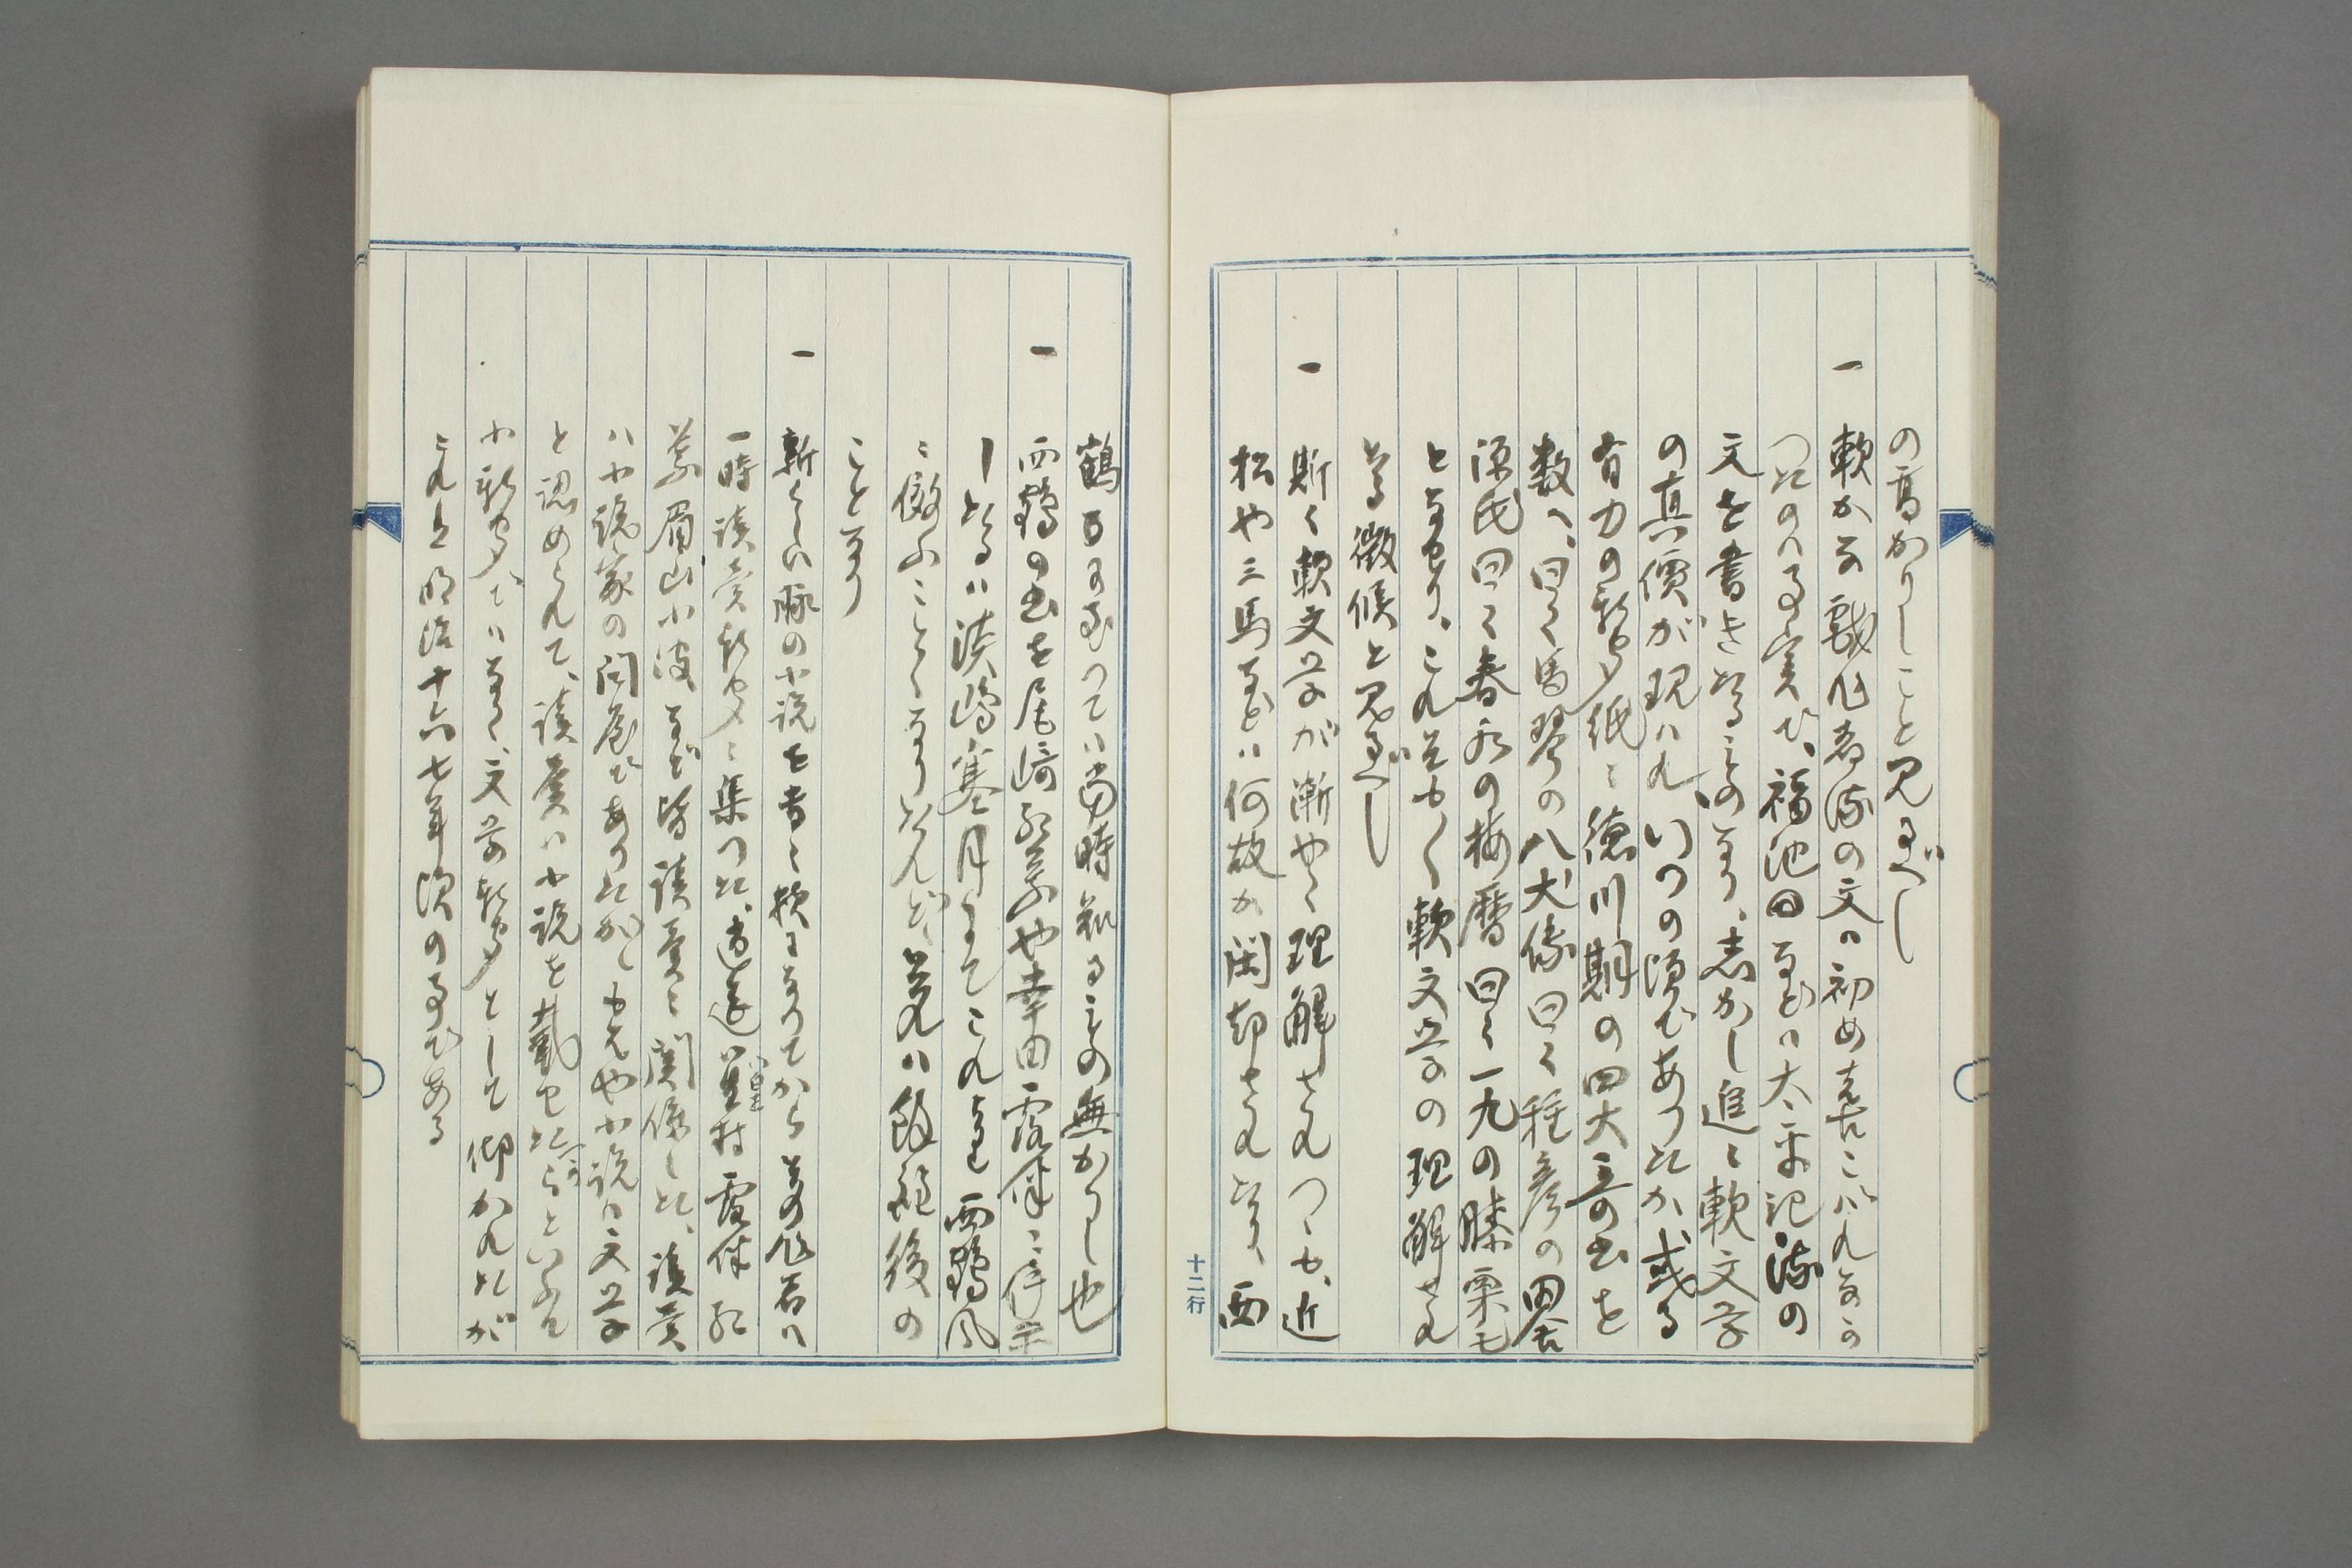 の高かりしこと見るべし
一 軟かな戯作者流の文は初め喜こばれなか
つたのは事実で、福池田などは太平記流の
文を書きたるものなり、志かし追々軟文学
の真價が現はれ、いつの頃であつたか或る
有力の新聞紙に徳川期の四大奇書を
数へ、曰く馬琴の八犬傳曰く種彦の田舎
源氏曰く春水の梅暦曰く一九の膝栗毛
となせり、これ漸やく軟文学の理解され
たる徴候と見るべし
一 斯く軟文学が漸やく理解されつゝも、近
松や三馬などは何故か閑却されたり、西
鶴に至つては当時知るもの無かりし也
一 西鶴の書を尾崎紅葉や幸田露伴に伝
したるは淡嶋寒月にてこれより西鶴風
に倣ふことゝなりたれど、夫れは餘程後の
ことなり
一 新らしい豚の小説を書く様になつてから其の作者は
一時読売新聞に集つた、逍遥篁村露伴紅
葉眉山小波など皆読売に関係した、読売
は小説家の問屋であつたが、もはや小説は文学
と認めらんて、読売は小説を載せたからといふて
小新聞ではなく、文学新聞として仰がれたが
これは明治十六七年頃の事である
十二行